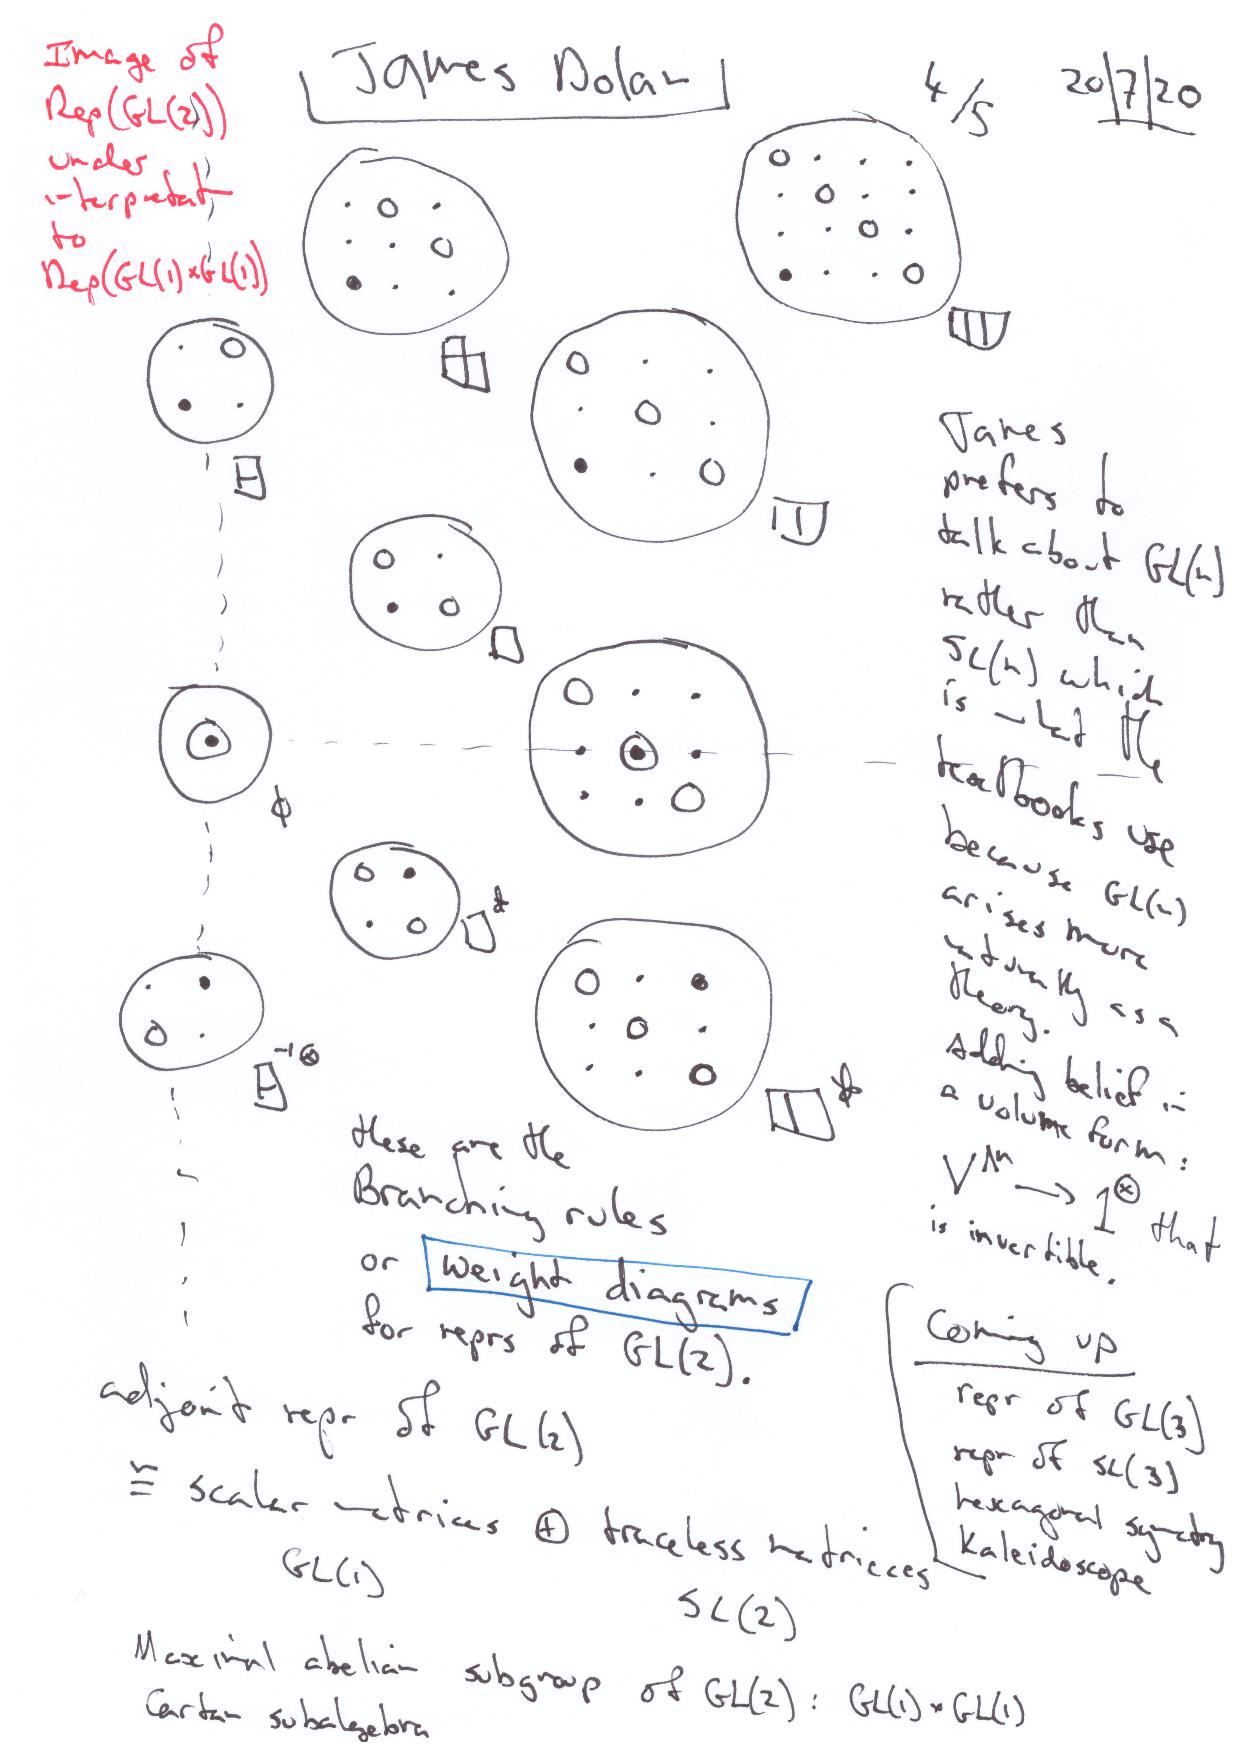 James Dolan
4/5
20/7/20
Image of
Rep(GL(2))
under
interpretat
to
Rep(GL(1)×GL(1))
James
prefers to
talk about GL(n)
rather than
SL(n) which
is what the
textbooks use
because GL(n)
arises more
naturally as a
theory.
Adding belief in
a volume form:
V^Λn → 1^⊗ that
is invertible.
ϕ
*
-1⊗
*
these are the
Branching rules
or weight diagrams
for reprs of GL(2).
Coming up
repr of GL(3)
repr of SL(3)
hexagonal symetry
Kaleidoscope
adjoint repr of GL(2)
≅ scalar matrices ⊕ traceless matrices
GL(1)
SL(2)
Maximal abelian subgroup of GL(2): GL(1)×GL(1)
Cartan subalgebra